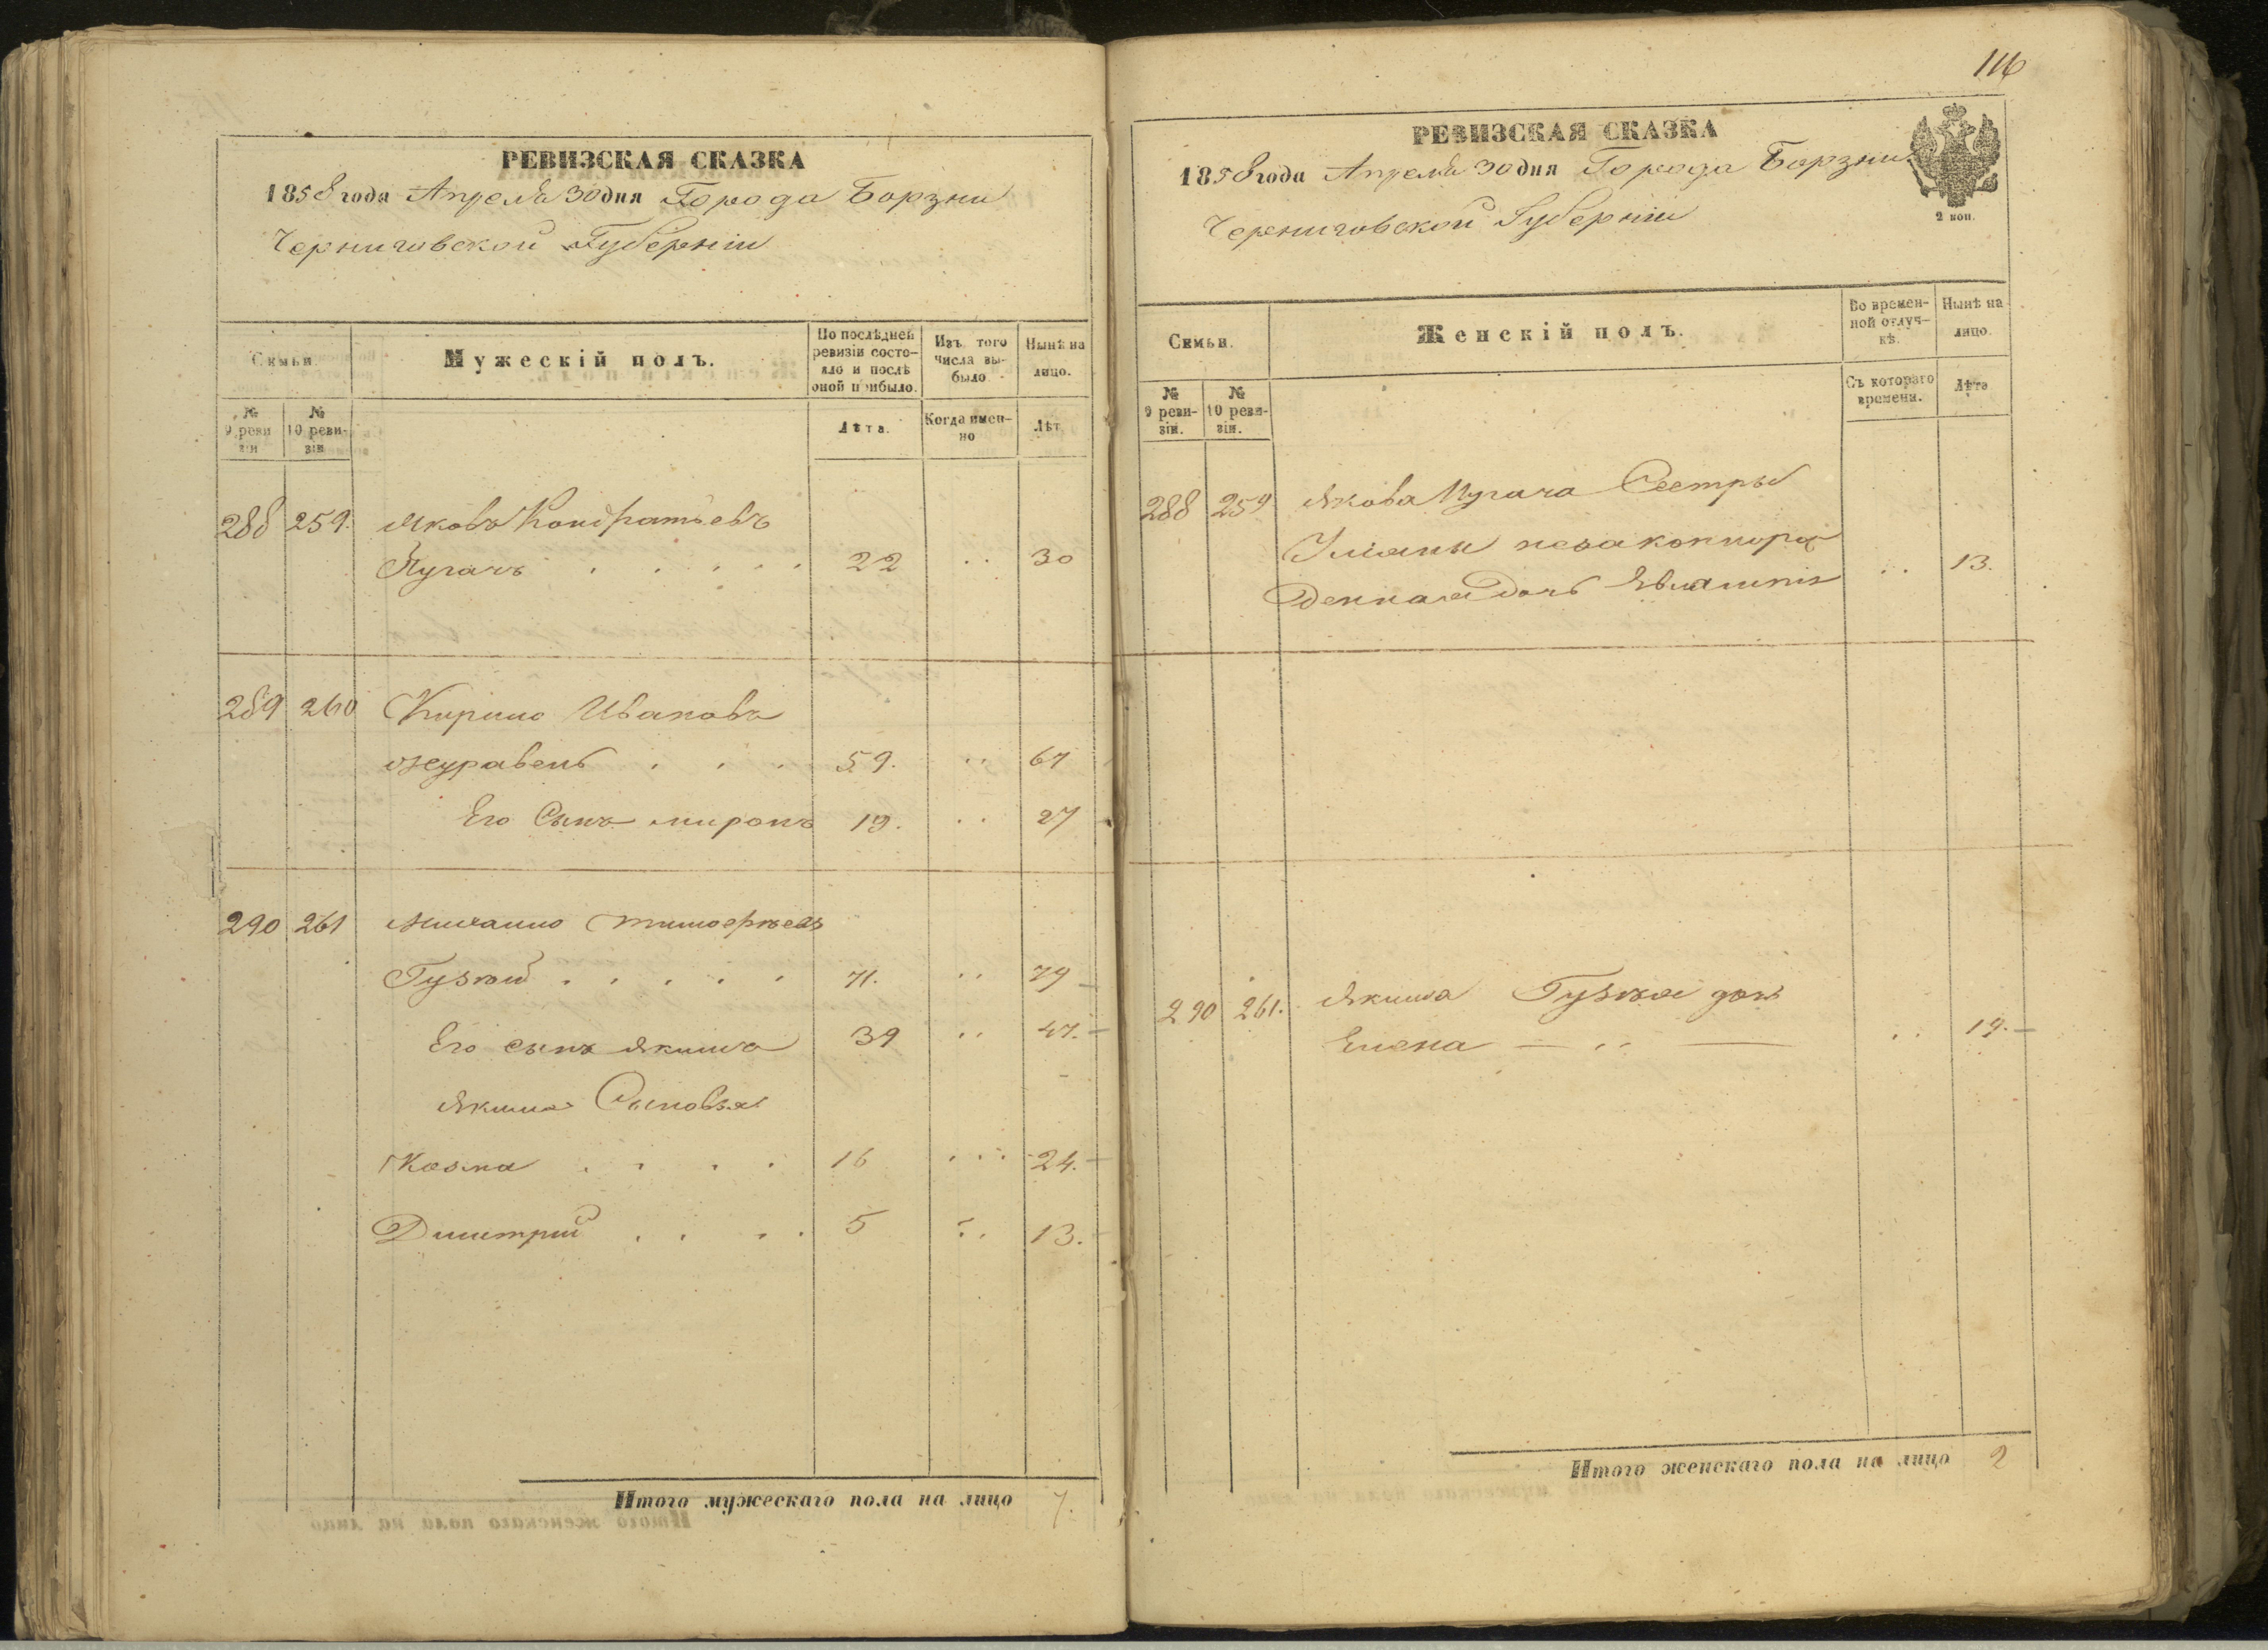 РЕВИЗСКАЯ СКАЗКА
1858 года Апреля 30 дня Города Борзни
Черниговской Губерніи
Семьи.
Мужескій полъ.
По послѣдней ревизіи состояло и послѣ оной прибыло.
Изъ того числа выбыло
Нынѣ на лицо.
№ 9 ревизіи
№ 10 ревизіи
Лѣта.
Когда именно
Лѣт
288 259. Яковъ Кондратьевъ
Пугачъ . . . . . 22 .. 30
289 260 Кирило Ивановъ
Журавель . . . 59. .. 67
Его Сынъ Миронъ 19. .. 27
290 261 Михайло Тимофѣевъ
Гузкій . . . . . 71. .. 79
Его сынъ Якимъ 39 .. 47.
Якима Сыновья
Козма . . . . 16 ... 24.
Димитрій . . . . 5 .. 13.
Итого мужескаго пола на лицо 7.
116
РЕВИЗСКАЯ СКАЗКА
1858 года Апреля 30 дня Города Борзни
Черниговской Губерніи
2 коп.
Семьи.
Женскій полъ.
Во временной отлучкѣ.
Нынѣ на лицо.
№ 9 ревизіи.
№ 10 ревизіи.
Съ котораго времени.
Лѣта
288 259 Якова Пугача Сестры
Уліяны незаконноро
жденная дочь .. 13.
290 261. Якима Гузкаго дочь
Елена — .. — .. 19.—
Итого женскаго пола на лицо 2